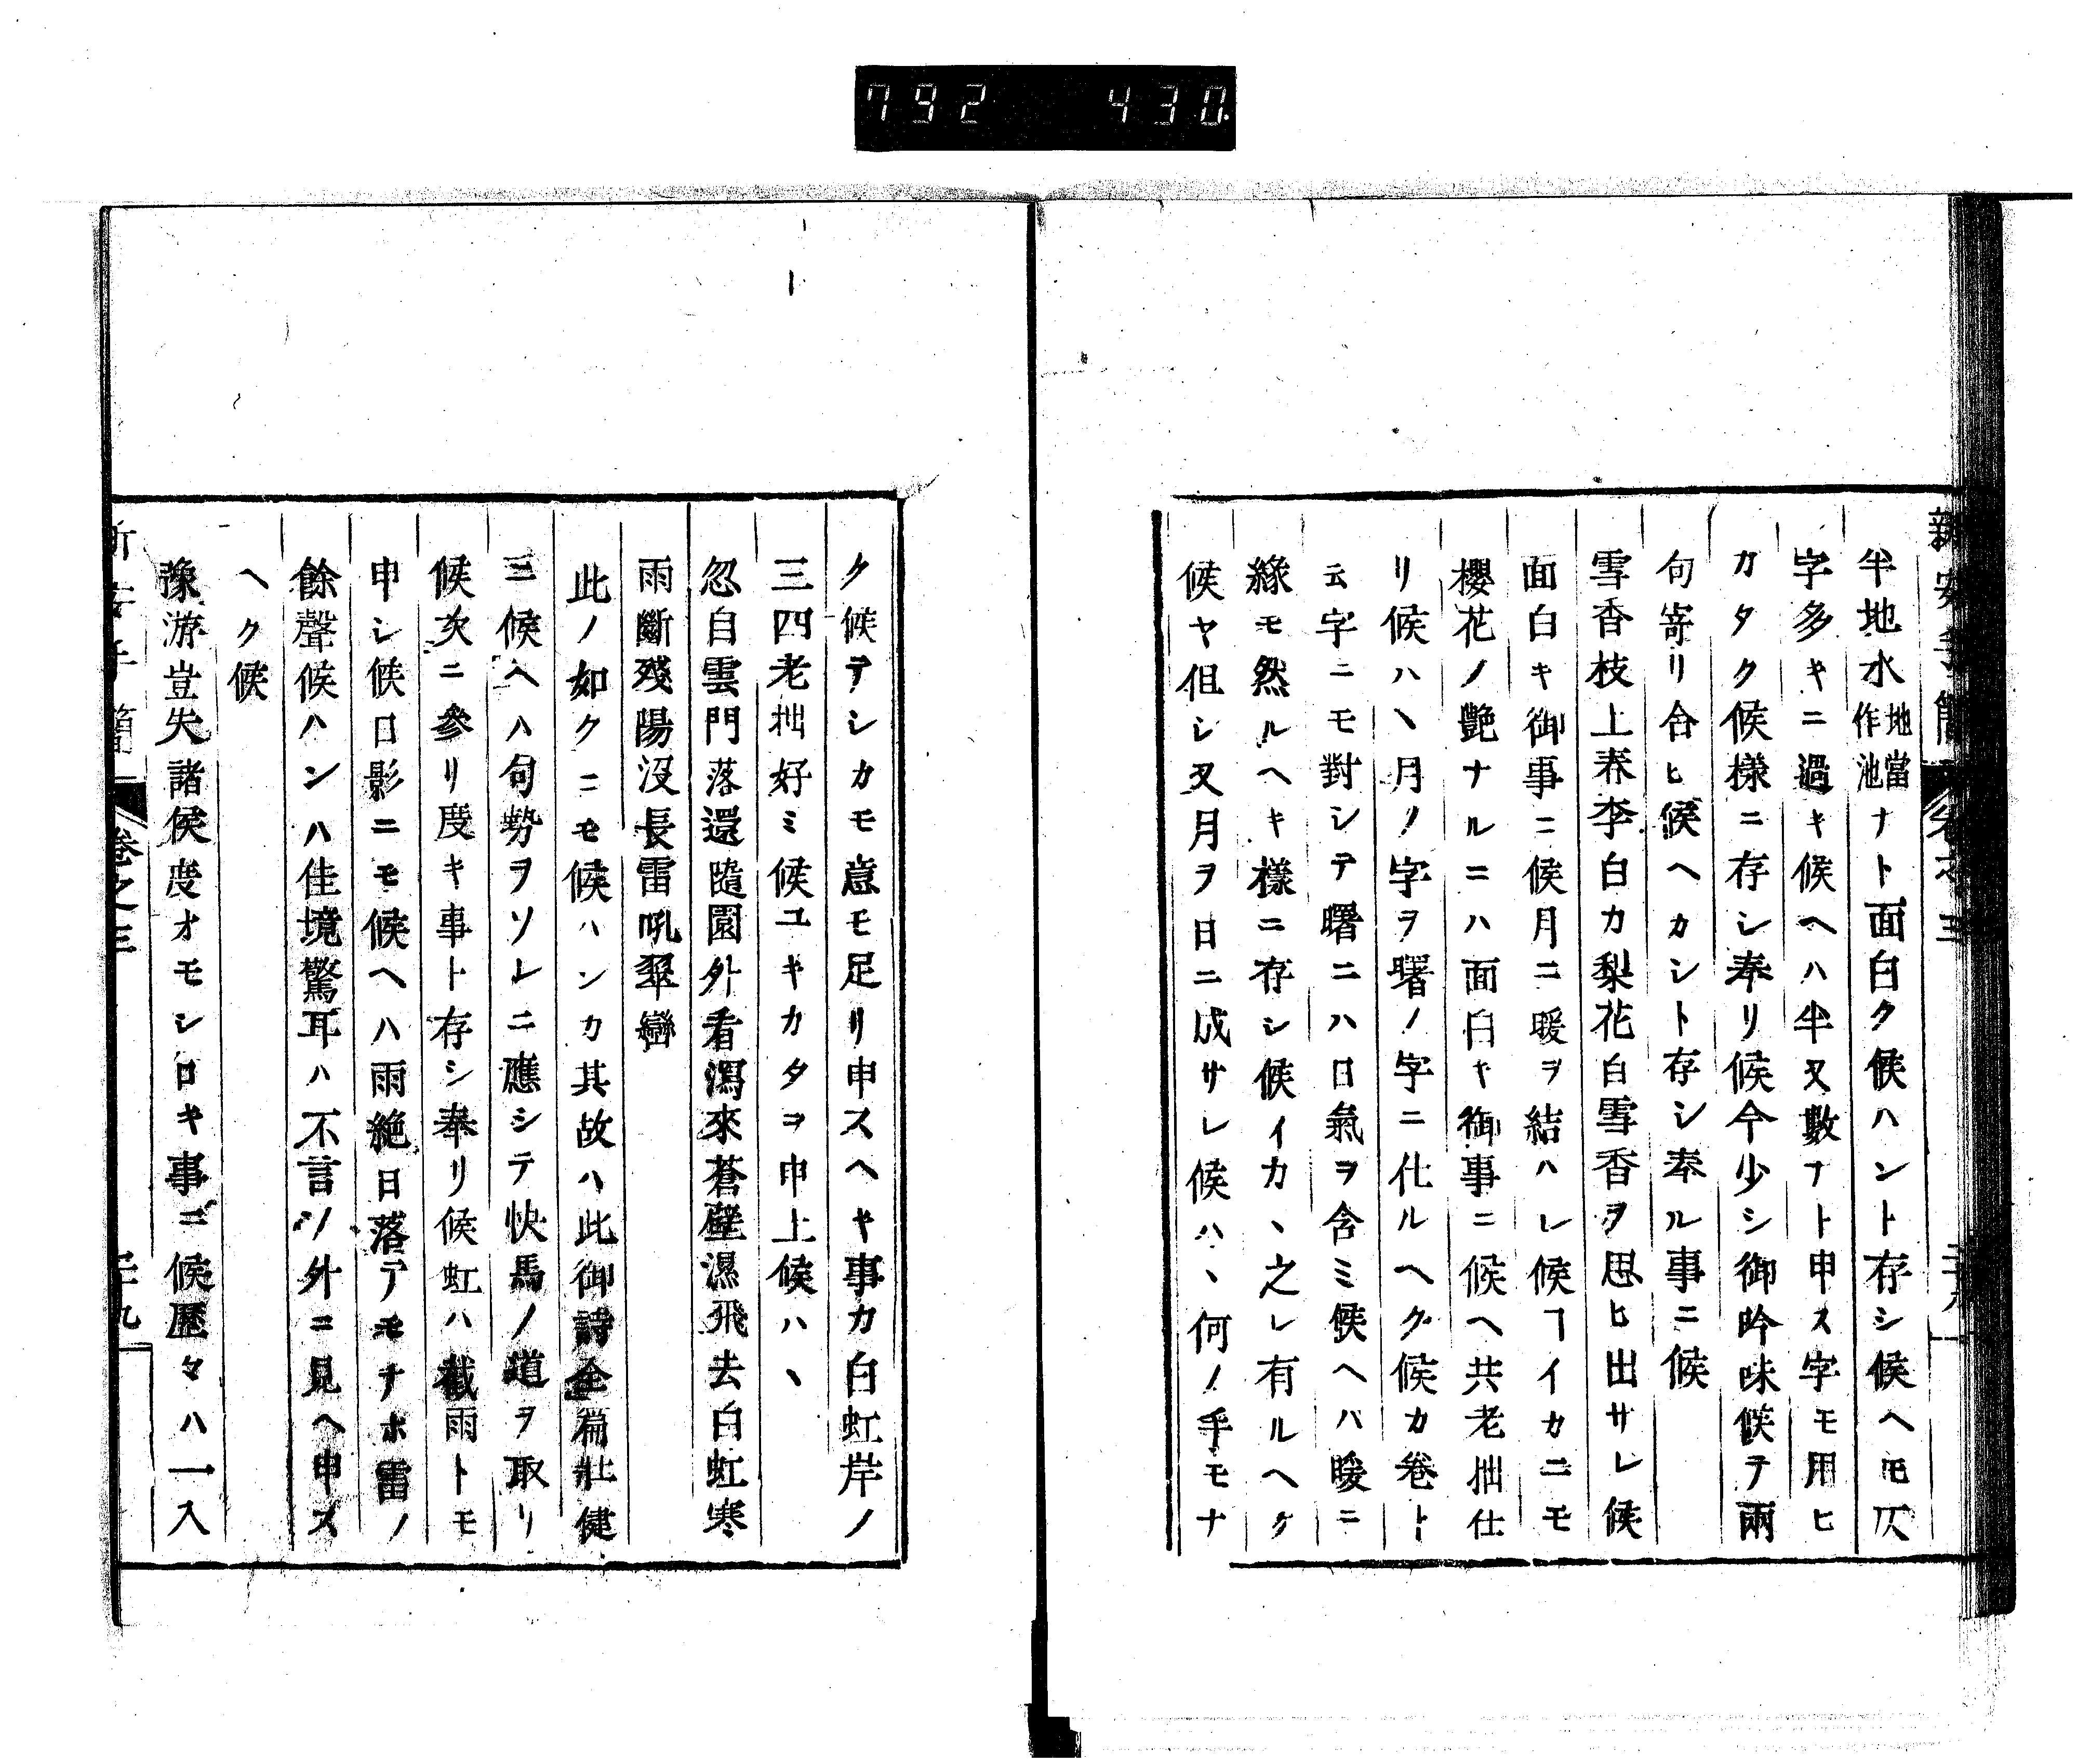 792 430
新安手簡 卷之三 二十八
半地水地當作池ナト面白ク候ハント存シ候ヘモ仄
字多キニ過キ候ヘハ半又數ナト申ス字モ用ヒ
カタク候樣ニ存シ奉リ候今少シ御吟味候テ兩
句寄リ合ヒ候ヘカシト存シ奉ル事ニ候
雪香枝上春李白カ梨花白雪香ヲ思ヒ出サレ候
面白キ御事ニ候月ニ暖ヲ結ハレ候ヿイカニモ
櫻花ノ艷ナルニハ面白キ御事ニ候ヘ共老拙仕
リ候ハヽ月ノ字ヲ曙ノ字ニ仕ルヘク候カ卷ト
云字ニモ對シテ曙ニハ日氣ヲ含ミ候ヘバ暖ニ
緣モ然ルヘキ樣ニ存シ候イカヽ之レ有ルヘク
候ヤ但シ又月ヲ日ニ成サレ候ハヽ何ノ手モナ
ク候テシカモ意モ足リ申スヘキ事カ白虹岸ノ
三四老拙好ミ候ユキカタヲ申上候ハヽ
忽自雲門落還隨園外看瀉來蒼壁濕飛去白虹寒
雨斷殘陽沒長雷吼翠巒
此ノ如クニモ候ハンカ其故ハ此御詩全篇壯健
ニ候ヘハ句勢ヲソレニ應シテ快馬ノ道ヲ取リ
候次ニ參リ度キ事ト存シ奉リ候虹ハ截雨トモ
申シ候日影ニモ候ヘハ雨絶日落テモナホ雷ノ
餘聲候ハンハ佳境驚耳ハ不言ノ外ニ見ヘ申ス
ヘク候
豫游豈失諸侯度オモシロキ事ニ候歷々ハ一入
新安手簡 卷之三 二十九